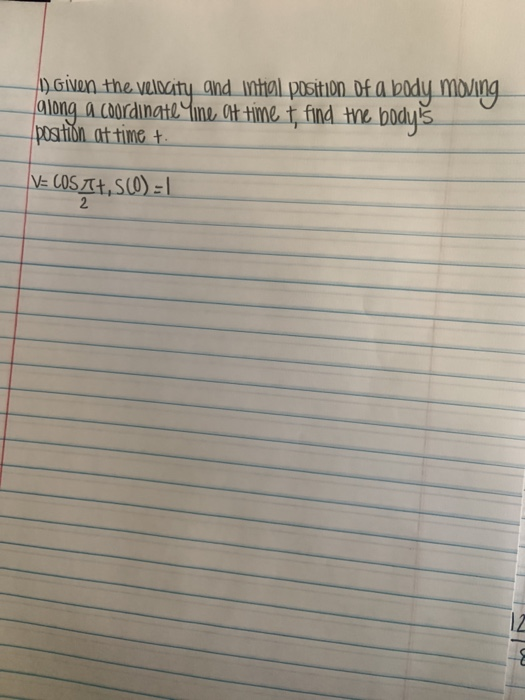 1) Given the velocity and intial position of a body moving
along a coordinate line at time t, find the body's
position at time t.
V= cos π/2 t, s(0) = 1
12
8